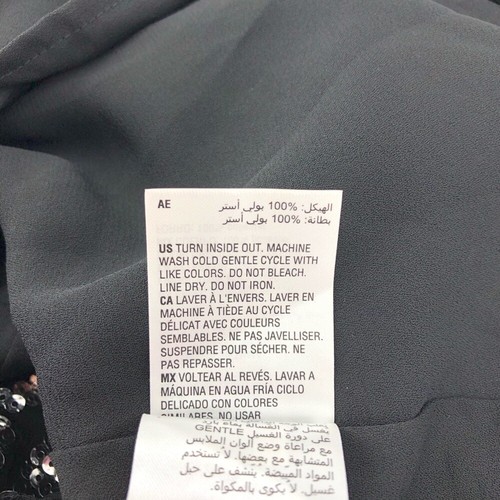 AE
الهيكل: 100% بولي أستر
بطانة: 100% بولي أستر
US TURN INSIDE OUT. MACHINE
WASH COLD GENTLE CYCLE WITH
LIKE COLORS. DO NOT BLEACH.
LINE DRY. DO NOT IRON.
CA LAVER À L'ENVERS. LAVER EN
MACHINE À TIÈDE AU CYCLE
DÉLICAT AVEC COULEURS
SEMBLABLES. NE PAS JAVELLISER.
SUSPENDRE POUR SÉCHER. NE
PAS REPASSER.
MX VOLTEAR AL REVÉS. LAVAR A
MÁQUINA EN AGUA FRÍA CICLO
DELICADO CON COLORES
SIMILARES. NO USAR
يغسل في الغسالة بماء بارد
على دورة الغسيل GENTLE
مع مراعاة وضع ألوان الملابس
المتشابهة مع بعضها. لا تستخدم
المواد المبيضة. ينشف على حبل
غسيل. لا يكوى بالمكواة.